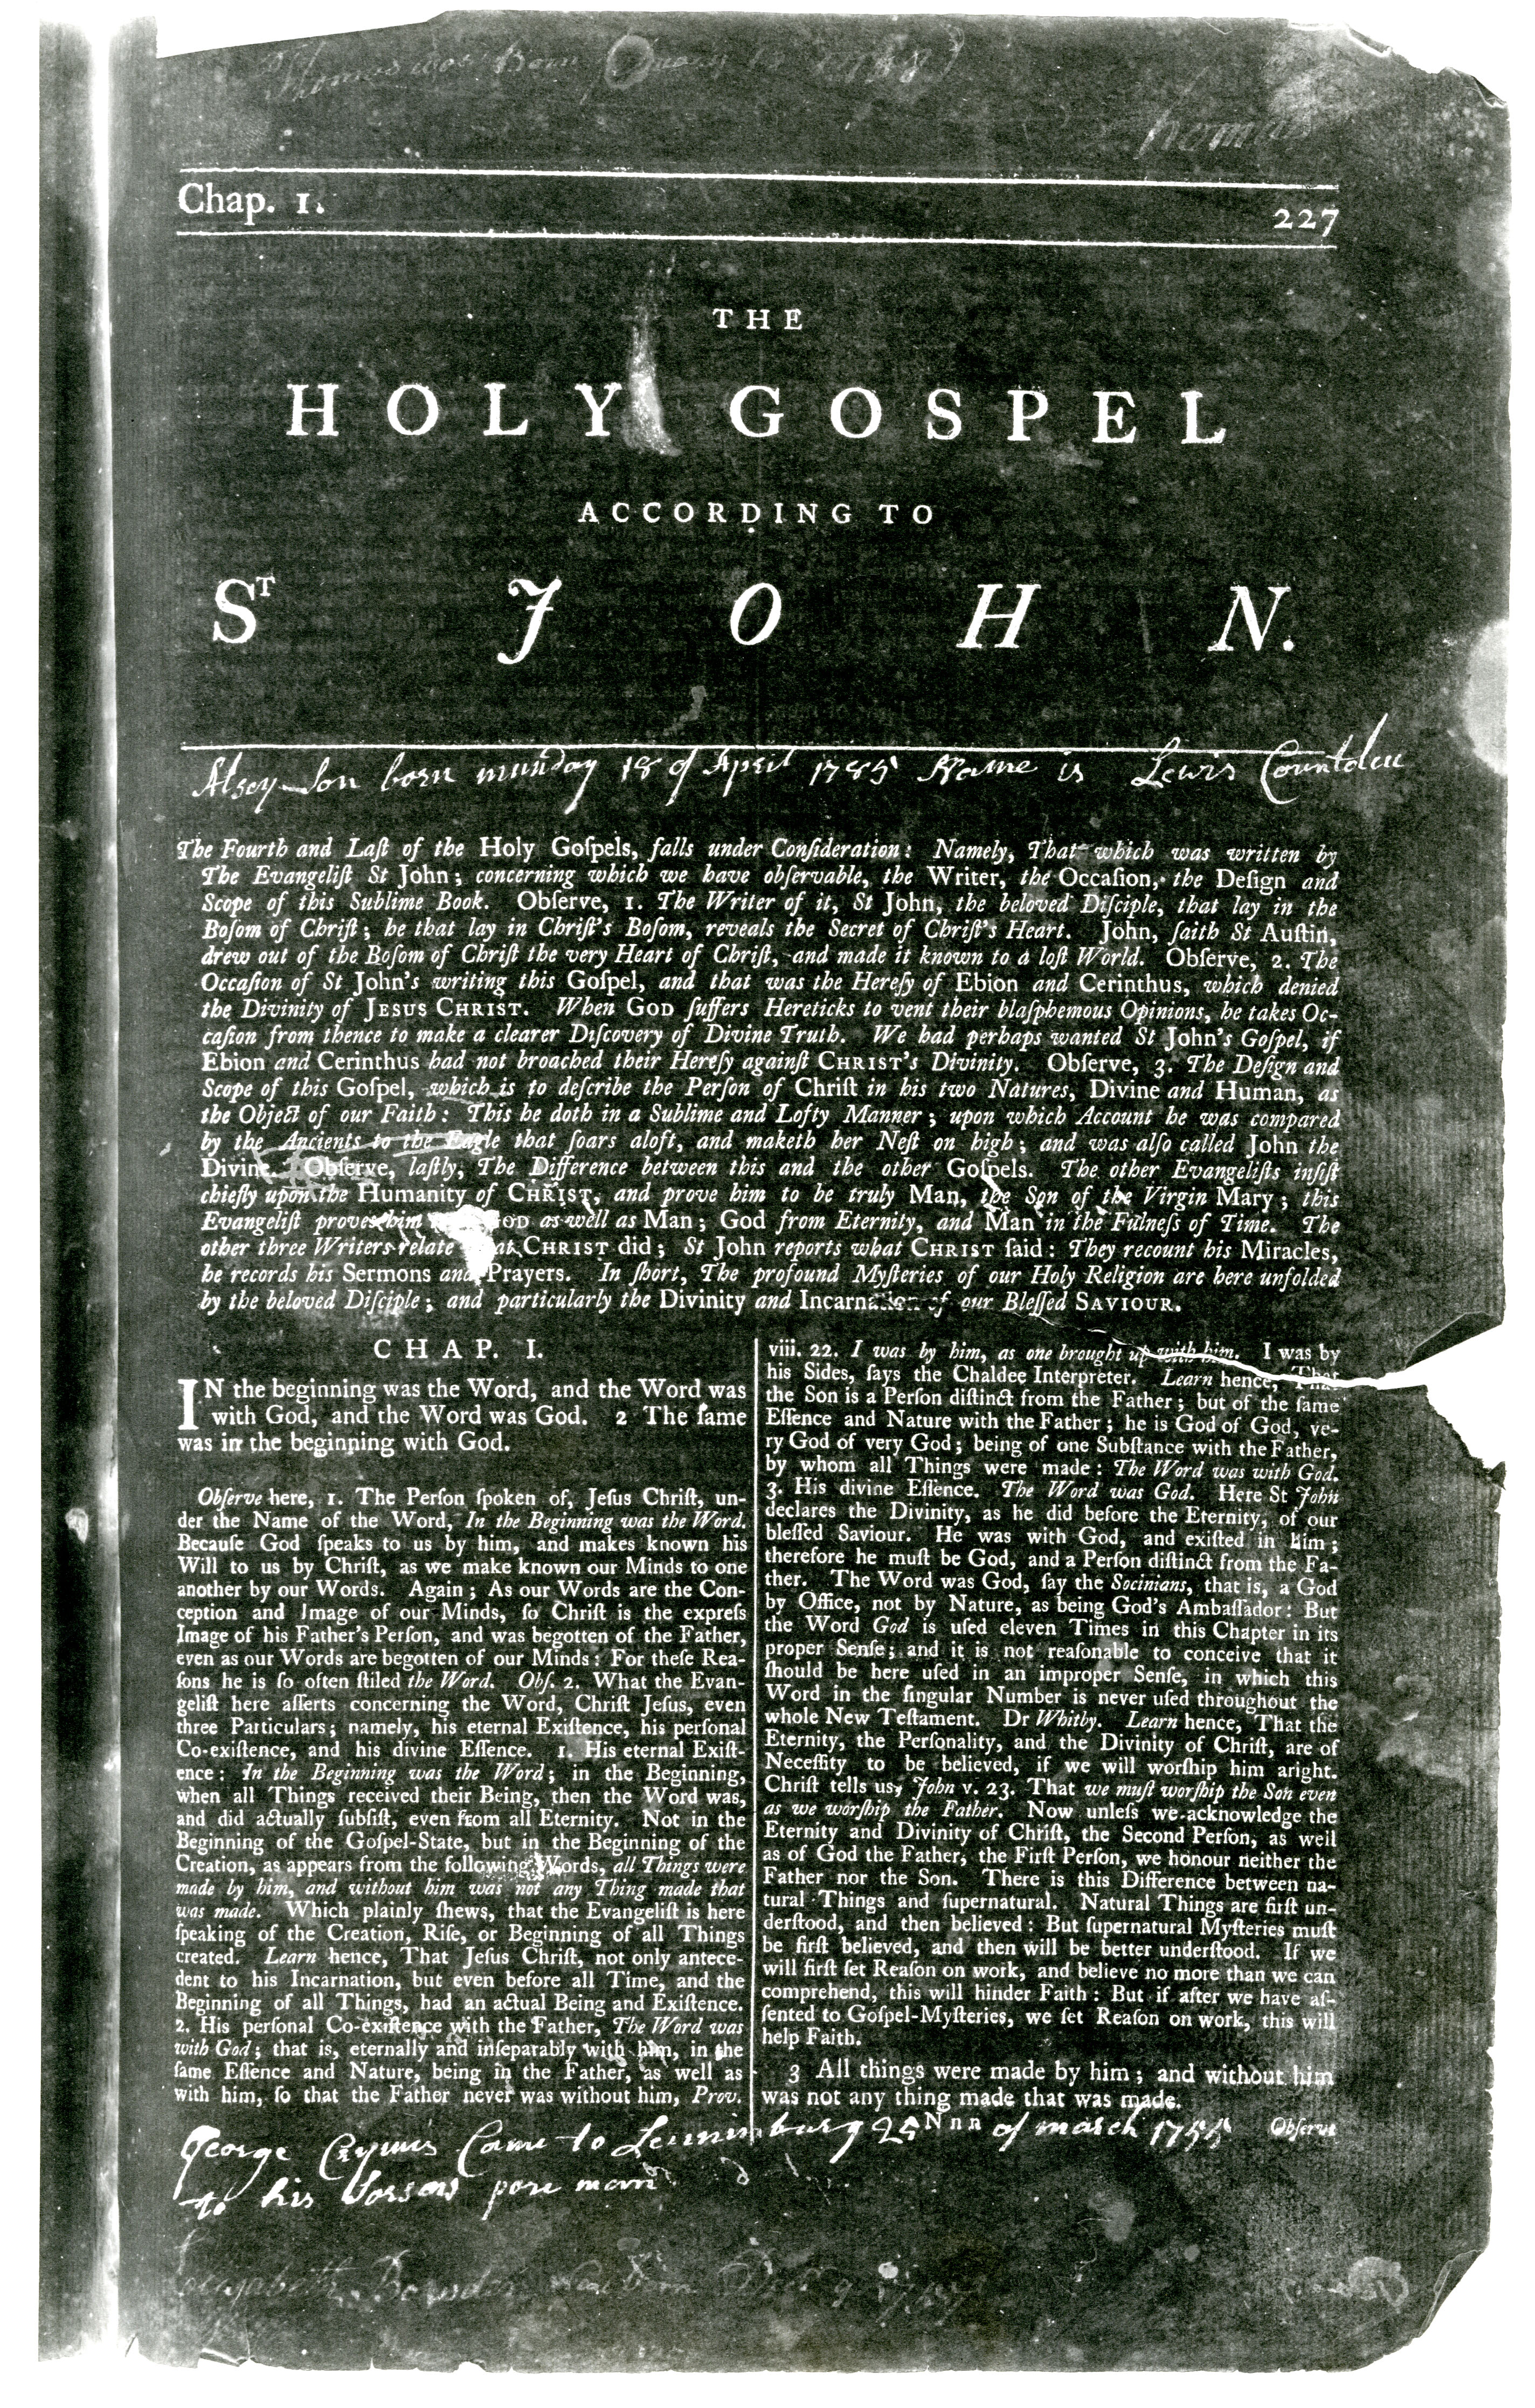 Thomas was Born
Chap. 1.
227
THE
HOLY GOSPEL
ACCORDING TO
Sᵀ JOHN.
Son born munday 18 of April 1785 Name is Lewis
The Fourth and Laſt of the Holy Goſpels, falls under Conſideration: Namely, That which was written by
The Evangeliſt St John; concerning which we have obſervable, the Writer, the Occaſion, the Deſign and
Scope of this Sublime Book. Obſerve, 1. The Writer of it, St John, the beloved Diſciple, that lay in the
Boſom of Chriſt; he that lay in Chriſt's Boſom, reveals the Secret of Chriſt's Heart. John, ſaith St Auſtin,
drew out of the Boſom of Chriſt the very Heart of Chriſt, and made it known to a loſt World. Obſerve, 2. The
Occaſion of St John's writing this Goſpel, and that was the Hereſy of Ebion and Cerinthus, which denied
the Divinity of JESUS CHRIST. When GOD ſuffers Hereticks to vent their blaſphemous Opinions, he takes Oc-
caſion from thence to make a clearer Diſcovery of Divine Truth. We had perhaps wanted St John's Goſpel, if
Ebion and Cerinthus had not broached their Hereſy againſt CHRIST's Divinity. Obſerve, 3. The Deſign and
Scope of this Goſpel, which is to deſcribe the Perſon of Chriſt in his two Natures, Divine and Human, as
the Object of our Faith: This he doth in a Sublime and Lofty Manner; upon which Account he was compared
by the Ancients to the Eagle that ſoars aloft, and maketh her Neſt on high; and was alſo called John the
Divine. Obſerve, laſtly, The Difference between this and the other Goſpels. The other Evangeliſts inſiſt
chiefly upon the Humanity of CHRIST, and prove him to be truly Man, the Son of the Virgin Mary; this
Evangeliſt proves him GOD as well as Man; God from Eternity, and Man in the Fulneſs of Time. The
other three Writers relate what CHRIST did; St John reports what CHRIST ſaid: They recount his Miracles,
he records his Sermons and Prayers. In ſhort, The profound Myſteries of our Holy Religion are here unfolded
by the beloved Diſciple; and particularly the Divinity and Incarnation of our Bleſſed SAVIOUR.
CHAP. I.
IN the beginning was the Word, and the Word was
with God, and the Word was God. 2 The ſame
was in the beginning with God.
Obſerve here, 1. The Perſon ſpoken of, Jeſus Chriſt, un-
der the Name of the Word, In the Beginning was the Word.
Becauſe God ſpeaks to us by him, and makes known his
Will to us by Chriſt, as we make known our Minds to one
another by our Words. Again; As our Words are the Con-
ception and Image of our Minds, ſo Chriſt is the expreſs
Image of his Father's Perſon, and was begotten of the Father,
even as our Words are begotten of our Minds: For theſe Rea-
ſons he is ſo often ſtiled the Word. Obſ. 2. What the Evan-
geliſt here aſſerts concerning the Word, Chriſt Jeſus, even
three Particulars; namely, his eternal Exiſtence, his perſonal
Co-exiſtence, and his divine Eſſence. 1. His eternal Exiſt-
ence: In the Beginning was the Word; in the Beginning,
when all Things received their Being, then the Word was,
and did actually ſubſiſt, even from all Eternity. Not in the
Beginning of the Goſpel-State, but in the Beginning of the
Creation, as appears from the following Words, all Things were
made by him, and without him was not any Thing made that
was made. Which plainly ſhews, that the Evangeliſt is here
ſpeaking of the Creation, Riſe, or Beginning of all Things
created. Learn hence, That Jeſus Chriſt, not only antece-
dent to his Incarnation, but even before all Time, and the
Beginning of all Things, had an actual Being and Exiſtence.
2. His perſonal Co-exiſtence with the Father, The Word was
with God; that is, eternally and inſeparably with him, in the
ſame Eſſence and Nature, being in the Father, as well as
with him, ſo that the Father never was without him, Prov.
viii. 22. I was by him, as one brought up with him. I was by
his Sides, ſays the Chaldee Interpreter. Learn hence, That
the Son is a Perſon diſtinct from the Father; but of the ſame
Eſſence and Nature with the Father; he is God of God, ve-
ry God of very God; being of one Subſtance with the Father,
by whom all Things were made: The Word was with God.
3. His divine Eſſence. The Word was God. Here St John
declares the Divinity, as he did before the Eternity, of our
bleſſed Saviour. He was with God, and exiſted in him;
therefore he muſt be God, and a Perſon diſtinct from the Fa-
ther. The Word was God, ſay the Socinians, that is, a God
by Office, not by Nature, as being God's Ambaſſador: But
the Word God is uſed eleven Times in this Chapter in its
proper Senſe; and it is not reaſonable to conceive that it
ſhould be here uſed in an improper Senſe, in which this
Word in the ſingular Number is never uſed throughout the
whole New Teſtament. Dr Whitby. Learn hence, That the
Eternity, the Perſonality, and the Divinity of Chriſt, are of
Neceſſity to be believed, if we will worſhip him aright.
Chriſt tells us, John v. 23. That we muſt worſhip the Son even
as we worſhip the Father. Now unleſs we acknowledge the
Eternity and Divinity of Chriſt, the Second Perſon, as well
as of God the Father, the Firſt Perſon, we honour neither the
Father nor the Son. There is this Difference between na-
tural Things and ſupernatural. Natural Things are firſt un-
derſtood, and then believed: But ſupernatural Myſteries muſt
be firſt believed, and then will be better underſtood. If we
will firſt ſet Reaſon on work, and believe no more than we can
comprehend, this will hinder Faith: But if after we have aſ-
ſented to Goſpel-Myſteries, we ſet Reaſon on work, this will
help Faith.
3 All things were made by him; and without him
was not any thing made that was made.
Nnn
Obſerve
George Came to 25 of march 1755
to his pore mam
Elizabeth